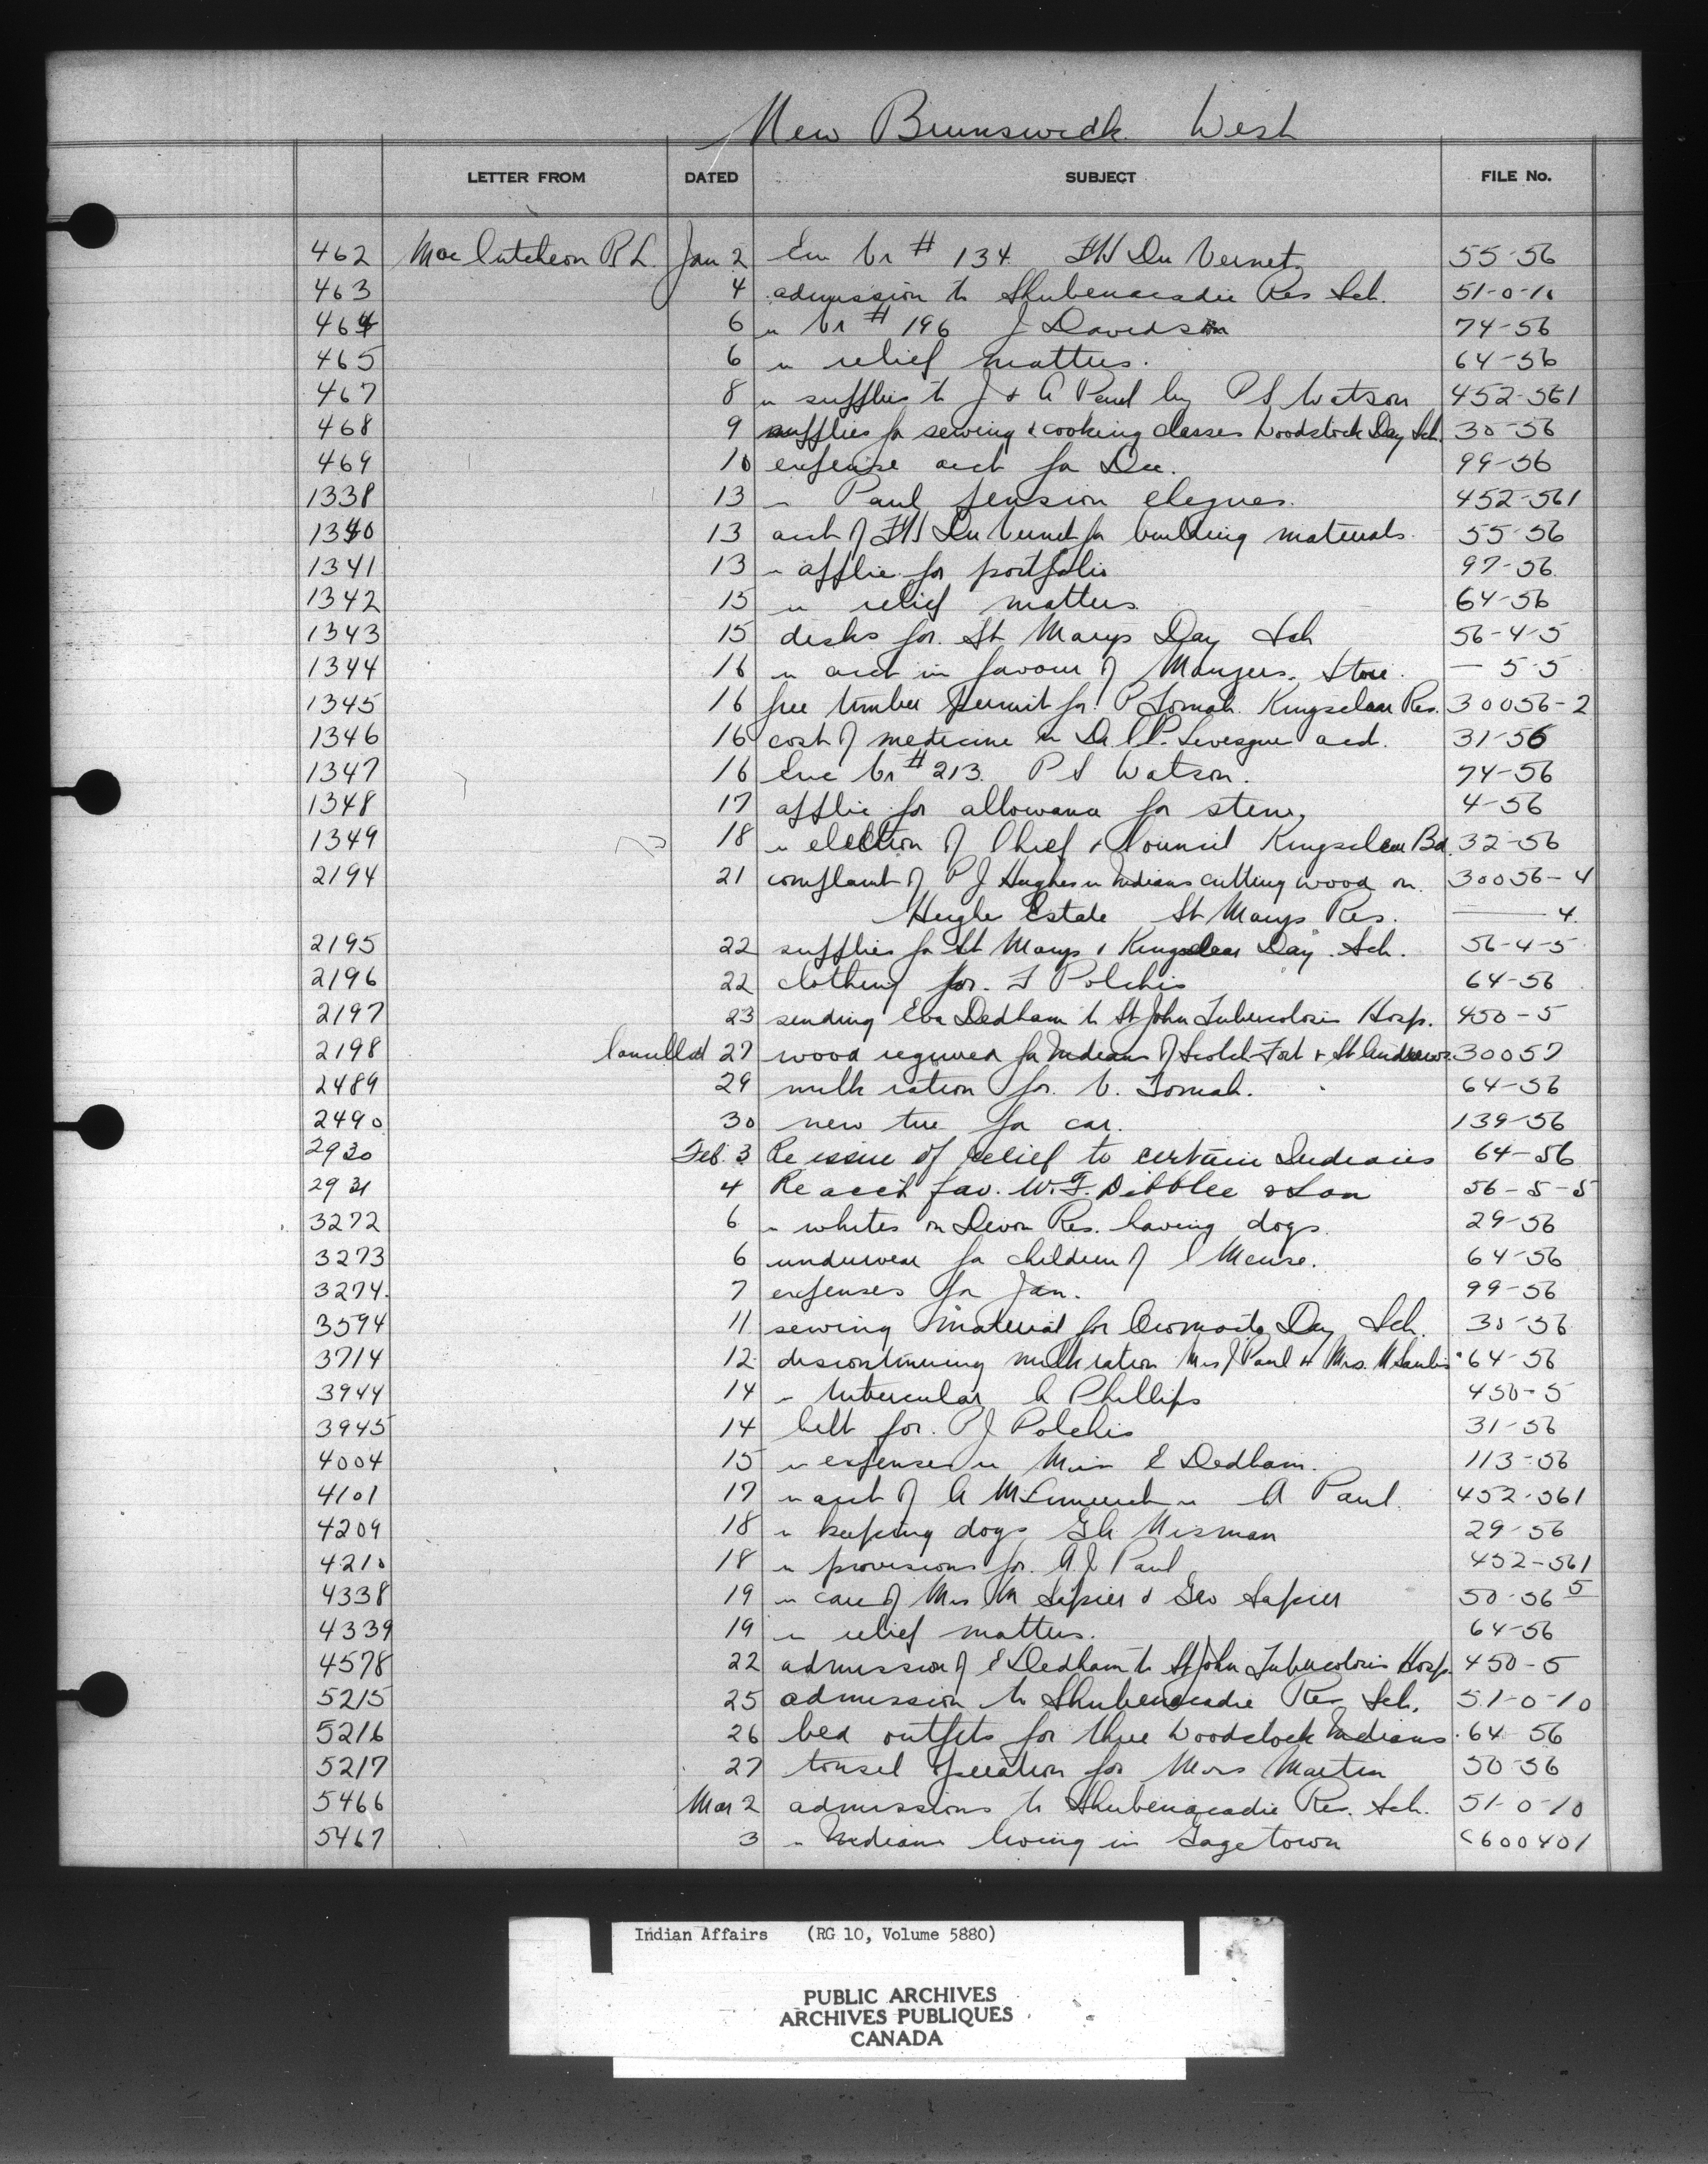 New Brunswick West
LETTER FROM DATED SUBJECT FILE No.
462 MacCutcheon R L. Jan 2 Enc Vr # 134. FW Du Vernet 55-56
463 4 admission to Shubenacadie Res Sch. 51-0-10
464 6 " Vr # 196 J Davidson 74-56
465 6 " relief matters. 64-56
467 8 " supplies to J & A Paul by P S Watson 452-561
468 9 supplies for sewing & cooking classes Woodstock Day Sch. 30-56
469 10 expense acct for Dec. 99-56
1338 13 " Paul pension cheques. 452-561
1340 13 acct of FW Du Vernet for building materials. 55-56
1341 13 " applic. for portfolio 97-56
1342 15 " relief matters 64-56
1343 15 desks for St Marys Day Sch 56-4-5
1344 16 " acct in favour of Store. — 5-5
1345 16 free timber permit for P Tomah. Kingsclear Res. 30056-2
1346 16 cost of medicine " Dr Levesque acct. 31-56
1347 16 Enc Vr # 213. P S Watson. 74-56
1348 17 applic for allowance for steno, 4-56
1349 18 " election of Chief & Council Kingsclear Bd. 32-56
2194 21 complaint of P J Hughes " Indians cutting wood on 30056-4
Estate St Marys Res. — 4.
2195 22 supplies for St Marys & Kingsclear Day Sch. 56-4-5
2196 22 clothing for F Polchis 64-56
2197 23 sending Eva Dedham to St John Tuberculosis Hosp. 450-5
2198 Cancelled 27 wood required for Indians of Scotch Fort & St Andrews 30057
2489 29 milk ration for V. Tomah. 64-56
2490 30 new tire for car. 139-56
2930 Feb. 3 Re issue of relief to certain Indians 64-56
2931 4 Re acct fav. W.F. Dibblee & Son 56-5-5
3272 6 " whites on Devon Res. having dogs. 29-56
3273 6 underwear for children of Meuse. 64-56
3274. 7 expenses for Jan. 99-56
3594 11 sewing material for Oromocto Day Sch. 30-56
3714 12 discontinuing milk ration Mrs J Paul & Mrs. 64-56
3944 14 " tubercular A Phillips 450-5
3945 14 belt for P J Polchis 31-56
4004 15 " expenses " Miss E Dedham. 113-56
4101 17 " acct of A " A Paul 452-561
4209 18 " keeping dogs 29-56
4210 18 " provisions for A.J. Paul 452-561
4338 19 " care of Mrs M Sapier & Geo Sapier 50-56 5
4339 19 " relief matters. 64-56
4578 22 admission of E Dedham to St John Tuberculosis Hosp. 450-5
5215 25 admission to Shubenacadie Res. Sch. 51-0-10
5216 26 bed outfits for three Woodstock Indians 64-56
5217 27 tonsil operation for Martin 50-56
5466 Mar 2 admissions to Shubenacadie Res. Sch. 51-0-10
5467 3 " Indians living in Gagetown C600401
Indian Affairs (RG 10, Volume 5880)
PUBLIC ARCHIVES
ARCHIVES PUBLIQUES
CANADA